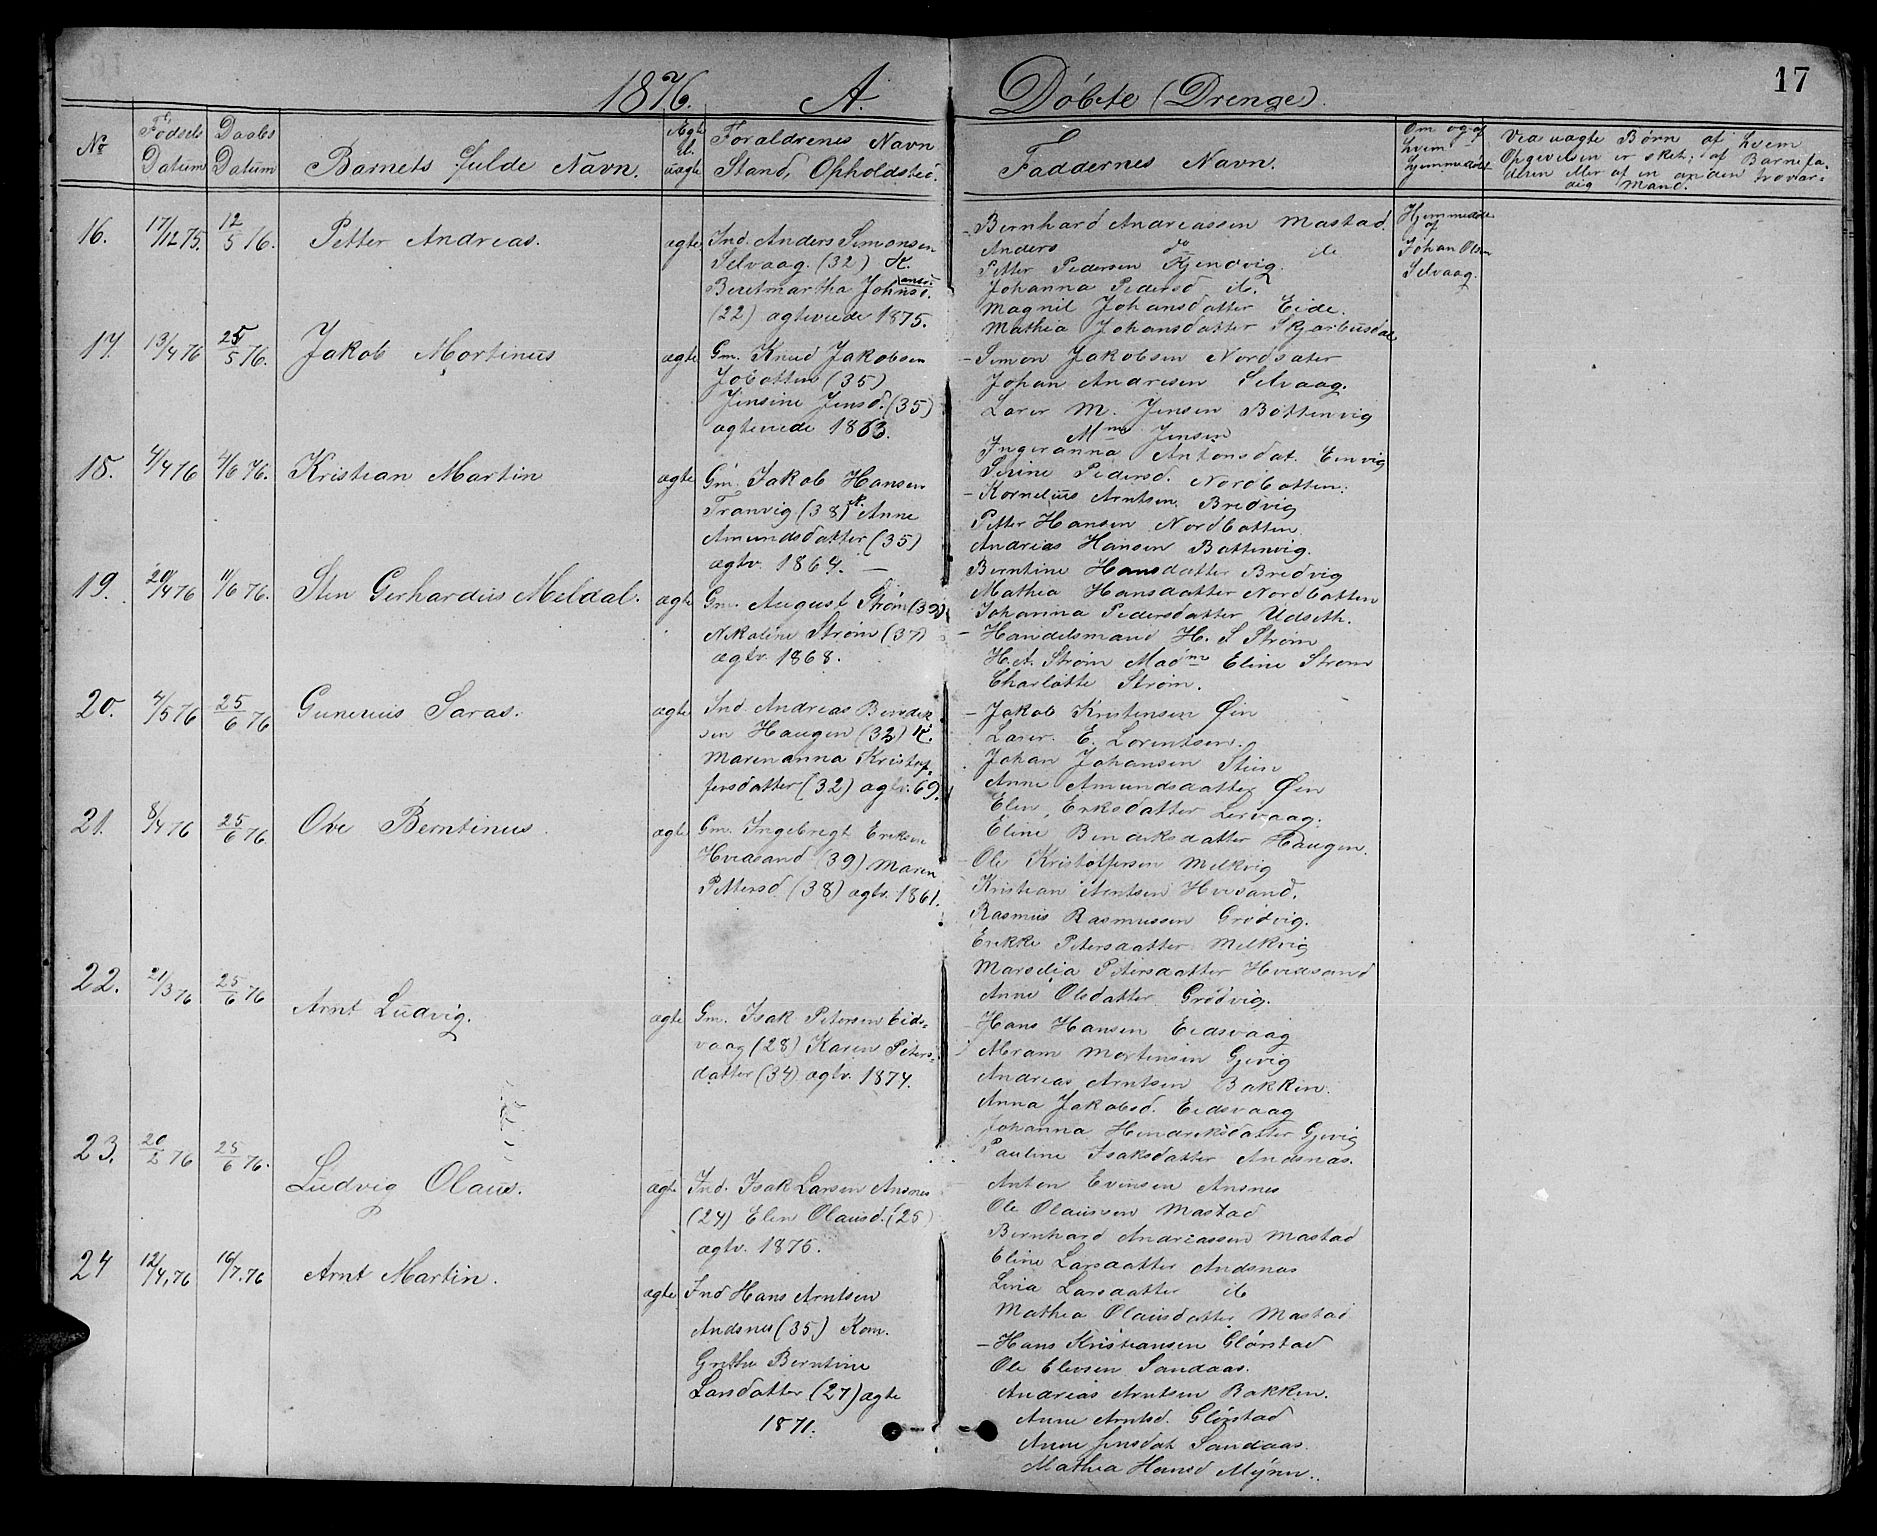 1876. A. Döbte (Drenge). 17
No
Födsels Datum
Daabs Datum
Barnets fulde Navn.
Ægte el. uægte
Foraldrenes Navn
Stand, Opholdsted.
Faddernes Navn.
Om og af hvem hjemmedøbt
Ved uægte Børn af hvem
Opgivelsen er sket; af Barnefa-
deren eller af en anden trovær-
dig Mand.
16. 17/12 75. 12/5 76. Petter Andreas. ægte
Ind. Anders Simonsen
Selvaag. (32) K.
Beretmartha Johnsd.
(22) ægteviede 1875.
Bernhard Andreassen Mastad.
Anders do de
Petter Pedersen Kjendvig.
Johanna Pedersd ib.
Magnil Johansdatter Eide.
Mathea Johansdatter
Hjemmedøbt
af
Johan Olsen
Selvaag.
17. 13/4 76 25/5 76. Jakob Mortinus ægte
Gm. Knud Jakobsen
(35)
Jensine Jensd. (35)
ægteviede 1863.
Simon Jakobsen Nordsæter
Johan Andresen Selvaag.
Lærer M. Jensen Bottenvig
Mme Jensen
Ingeranna Antonsdat. Eenvig
Serine Pedersd. Nordbotten.
18. 4/4 76 4/6 76. Kristian Martin ægte
Gm. Jakob Hansen
Tranvig (38) K. Anne
Amundsdatter (35)
ægtv. 1864. —
Kornelius Arntsen Bredvig
Petter Hansen Nordbotten
Andreas Hansen Bottenvig.
Berntine Hansdatter Bredvig
Mathea Hansdatter Nordbotten
Johanna Pedersdatter Udseth.
19. 20/4 76 11/6 76. Sten Gerhardus Meldal. ægte
Gm. August Strøm (39)
Nikoline Strøm (37)
ægtv. 1868.
Handelsmand H. S Strøm
H. A. Strøm Madme Eline Strøm
Charlotte Strøm.
20. 4/5 76 25/6 76 Gunerius Saras. ægte
Ind. Andreas Bendik
sen Haugen (32) K.
Marenanna Kristof-
fersdatter (32) ægtv. 69.
Jakob Kristensen Øien
Lærer. E. Lorentsen.
Johan Johansen Stein
Anne Amundsdatter Øien
Elen Eriksdatter Lervaag.
Eline Bendiksdatter Haugen.
21. 8/4 76 25/6 76 Ove Berntinus. ægte
Gm. Ingebregt Eriksen
Hvidsand (39) Maren
Pettersd (38) ægtv. 1861.
Ole Kristoffersen Melkvig
Kristian Arntsen Hvisand.
Rasmus Rasmussen Grødvig.
Erikke Petersdatter Melkvig
Marselia Petersdatter Hvidsand
Anne Olsdatter Grødvig.
22. 21/3 76 25/6 76 Arnt Ludvig. ægte
Gm. Isak Petersen Eids-
vaag (28) Karen Peters-
datter (34) ægtv. 1874.
Hans Hansen Eidsvaag
Abram Mortensen Gjevig
Andreas Arntsen Bakken.
Anna Jakobsd. Eidsvaag
Johanna Hendriksdatter Gjevig
Pauline Isaksdatter Andsnæs.
23. 20/2 76 25/6 76. Ludvig Olaus. ægte
Ind. Isak Larsen Ansnes
(24) Elen Olausd. (25)
ægtv. 1875.
Anton Evensen Ansnes
Ole Olaussen Mastad
Bernhard Andreassen Mastad
Eline Larsdatter Andsnæs
Lina Larsdatter ib
Mathea Olausdatter Mastad
24 12/4, 76 16/7. 76 Arnt Martin. ægte
Ind Hans Arntsen
Andsnes (35) Kon.
Grethe Berntine
Larsdatter (27) ægte
1871.
Hans Kristiansen Glörstad
Ole Elevsen Sandaas.
Andreas Arntsen Bakken.
Anne Arntsd. Glörstad
Anne Jensdat Sandaas.
Mathea Hansd Myren.